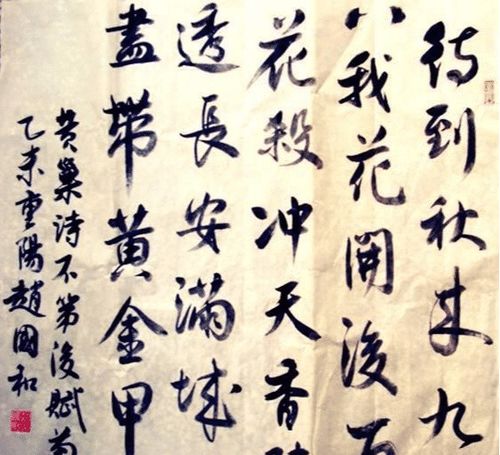 待到秋来九
八我花開後百
花殺冲天香陣
透長安滿城
盡帶黄金甲
黄巢诗不第後赋菊
乙未重陽趙國和